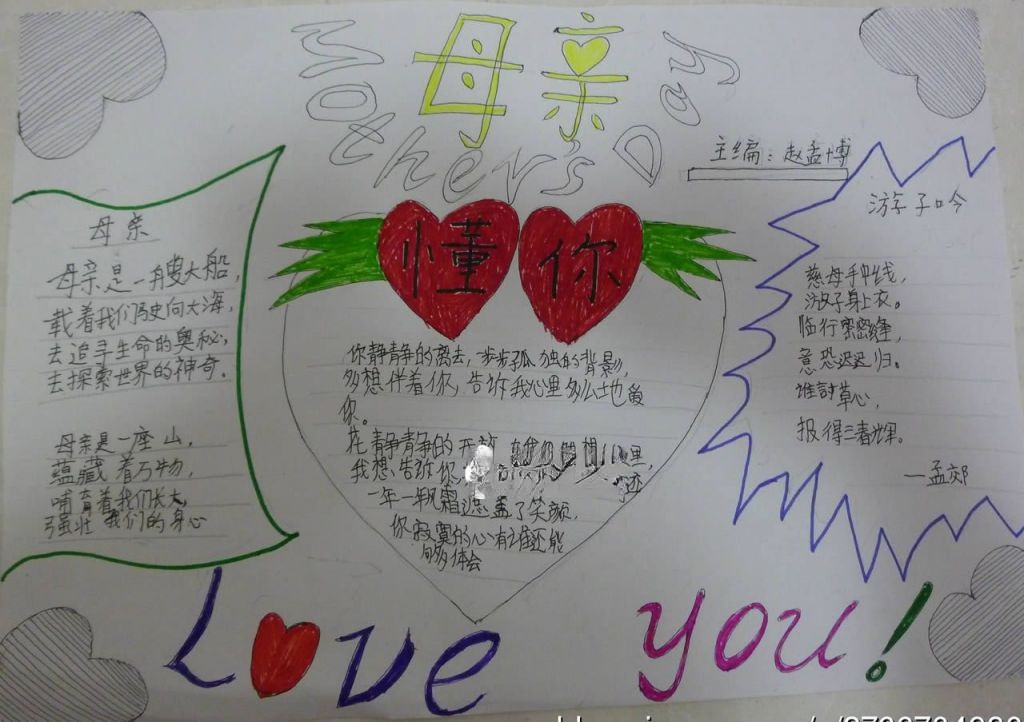 Mother's Day
母亲
主编：赵孟博
母亲
母亲是一艘大船，
载着我们驶向大海，
去追寻生命的奥秘，
去探索世界的神奇。
母亲是一座山，
蕴藏着万物，
哺育着我们长大，
强壮我们的身心
懂你
你静静的离去，一步步孤独的背影，
多想伴着你，告诉我心里多么地爱
你。
花静静静的开放
我想告诉你，
一年一年风霜遮盖了笑颜，
你寂寞的心有谁还能
够多体会
游子吟
慈母手中线，
游子身上衣。
临行密密缝，
意恐迟迟归。
谁
草心，
报得三春晖。
—孟郊
Love you!